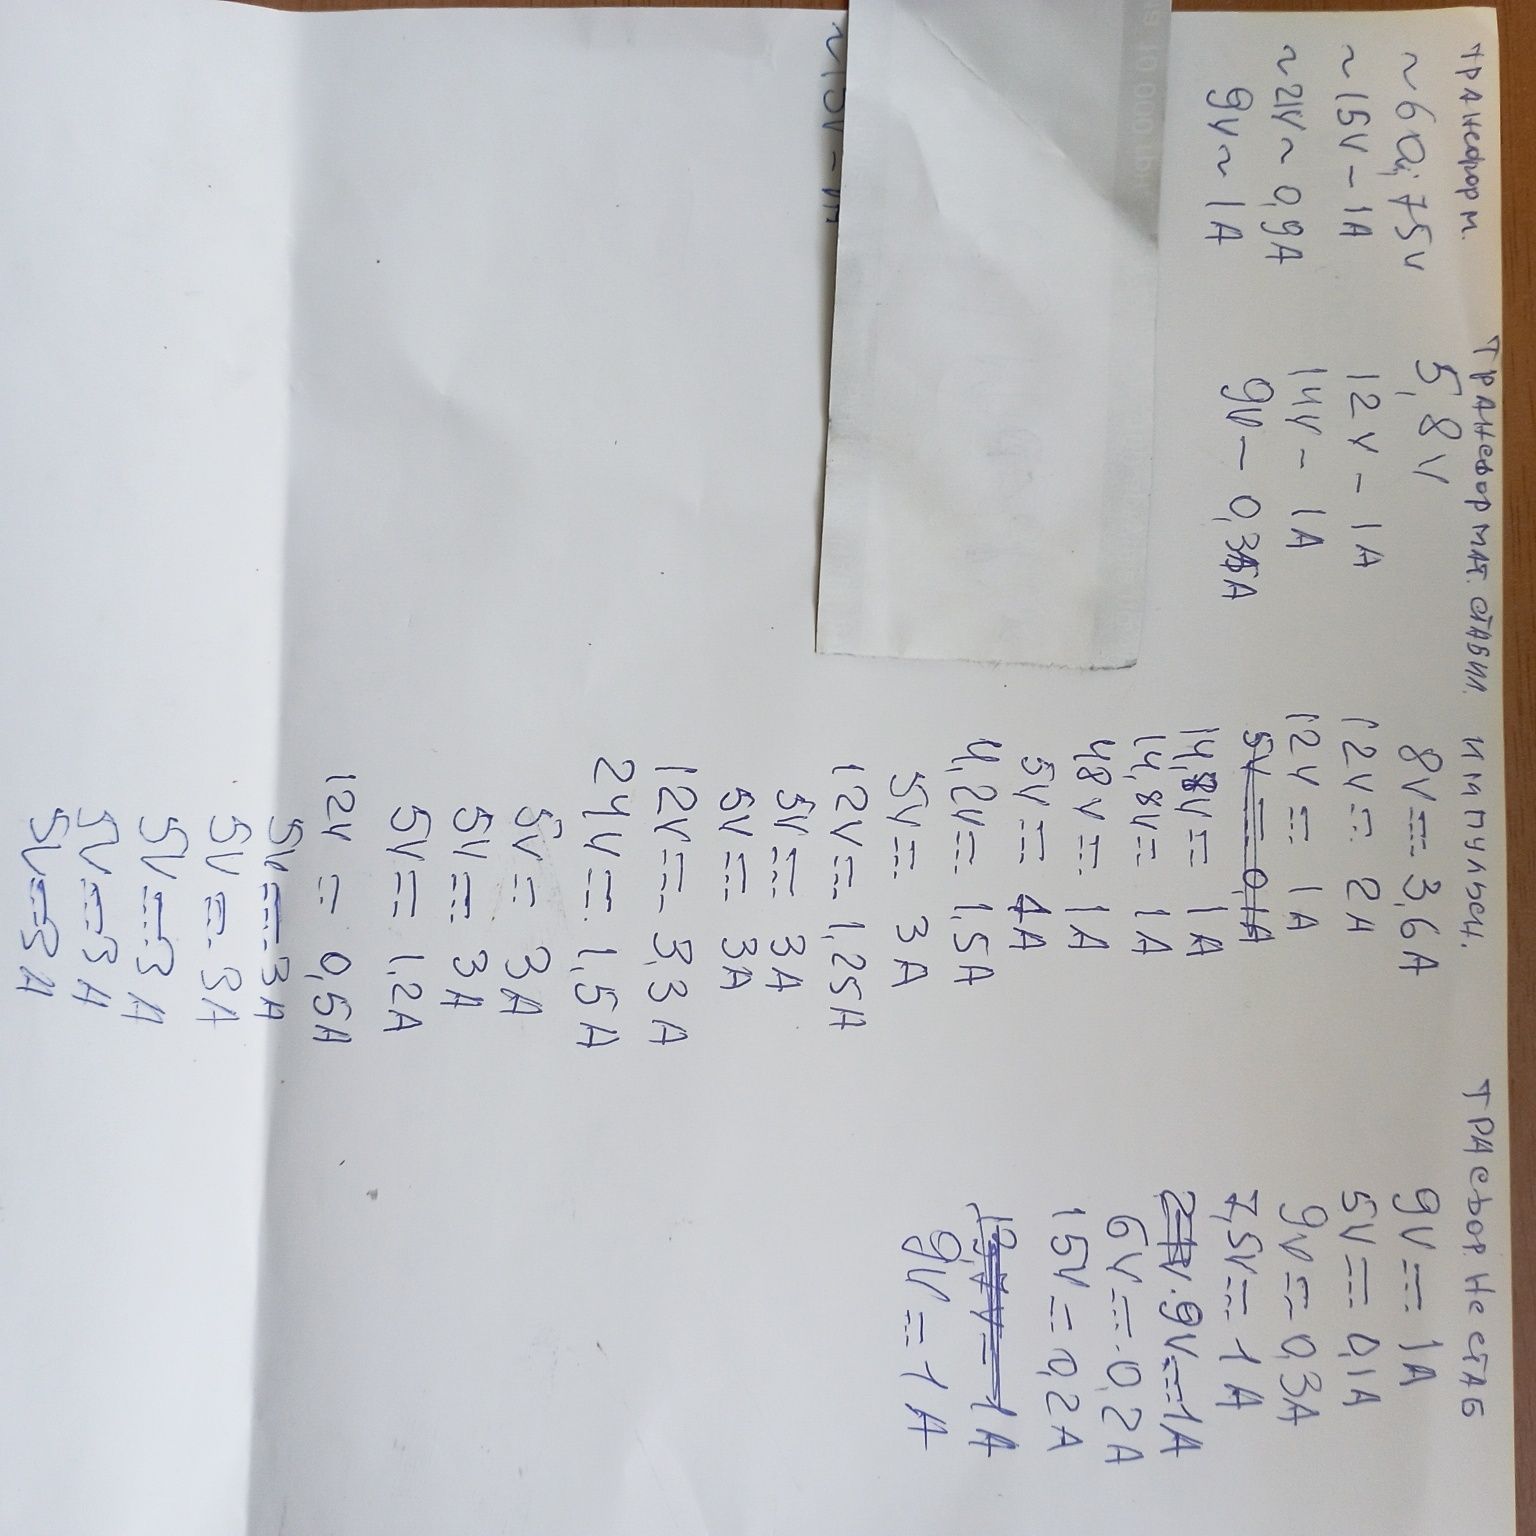 трансформ.
~6 0,75v
~15v – 1A
~21v ~ 0,9A
9v ~ 1A
~15v – 1A
трансформат. стабил.
5,8v
12v – 1A
14v – 1A
9v – 0,35A
импульсн.
8v = 3,6A
12v = 2A
12v = 1A
5v = 0,1A
14,8v = 1A
14,8v = 1A
48v = 1A
5v = 4A
4,2v = 1,5A
5v = 3A
12v = 1,25A
5v = 3A
5v = 3A
12v = 3,3A
24v = 1,5A
5v = 3A
5v = 3A
5v = 1,2A
12v = 0,5A
5v = 3A
5v = 3A
5v = 3A
5v = 3A
5v = 3A
трасфор. не стаб
9v = 1A
5v = 0,1A
9v = 0,3A
7,5v = 1A
9v = 1A
6v = 0,2A
15v = 0,2A
= 1A
9v = 1A